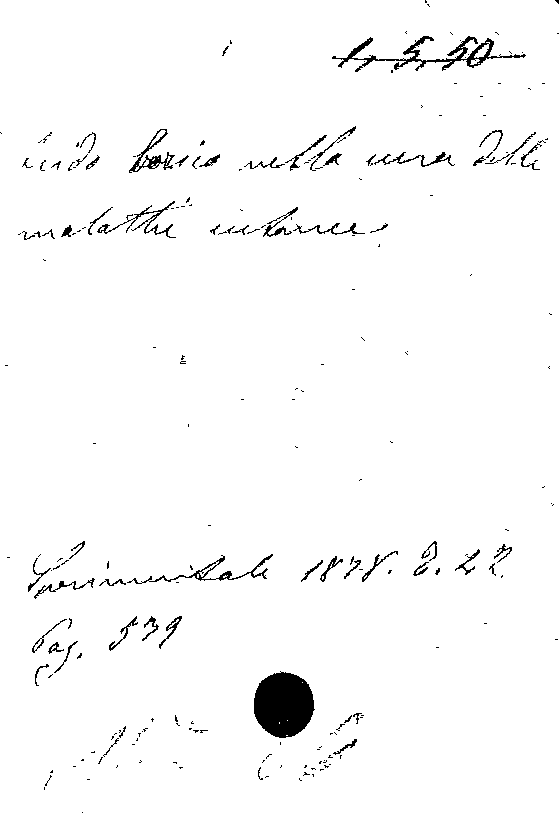 1, 5, 50
Acido borico nella cura delle
malattie cutanee
Sperimentale 1878. T. 42.
Pag. 539